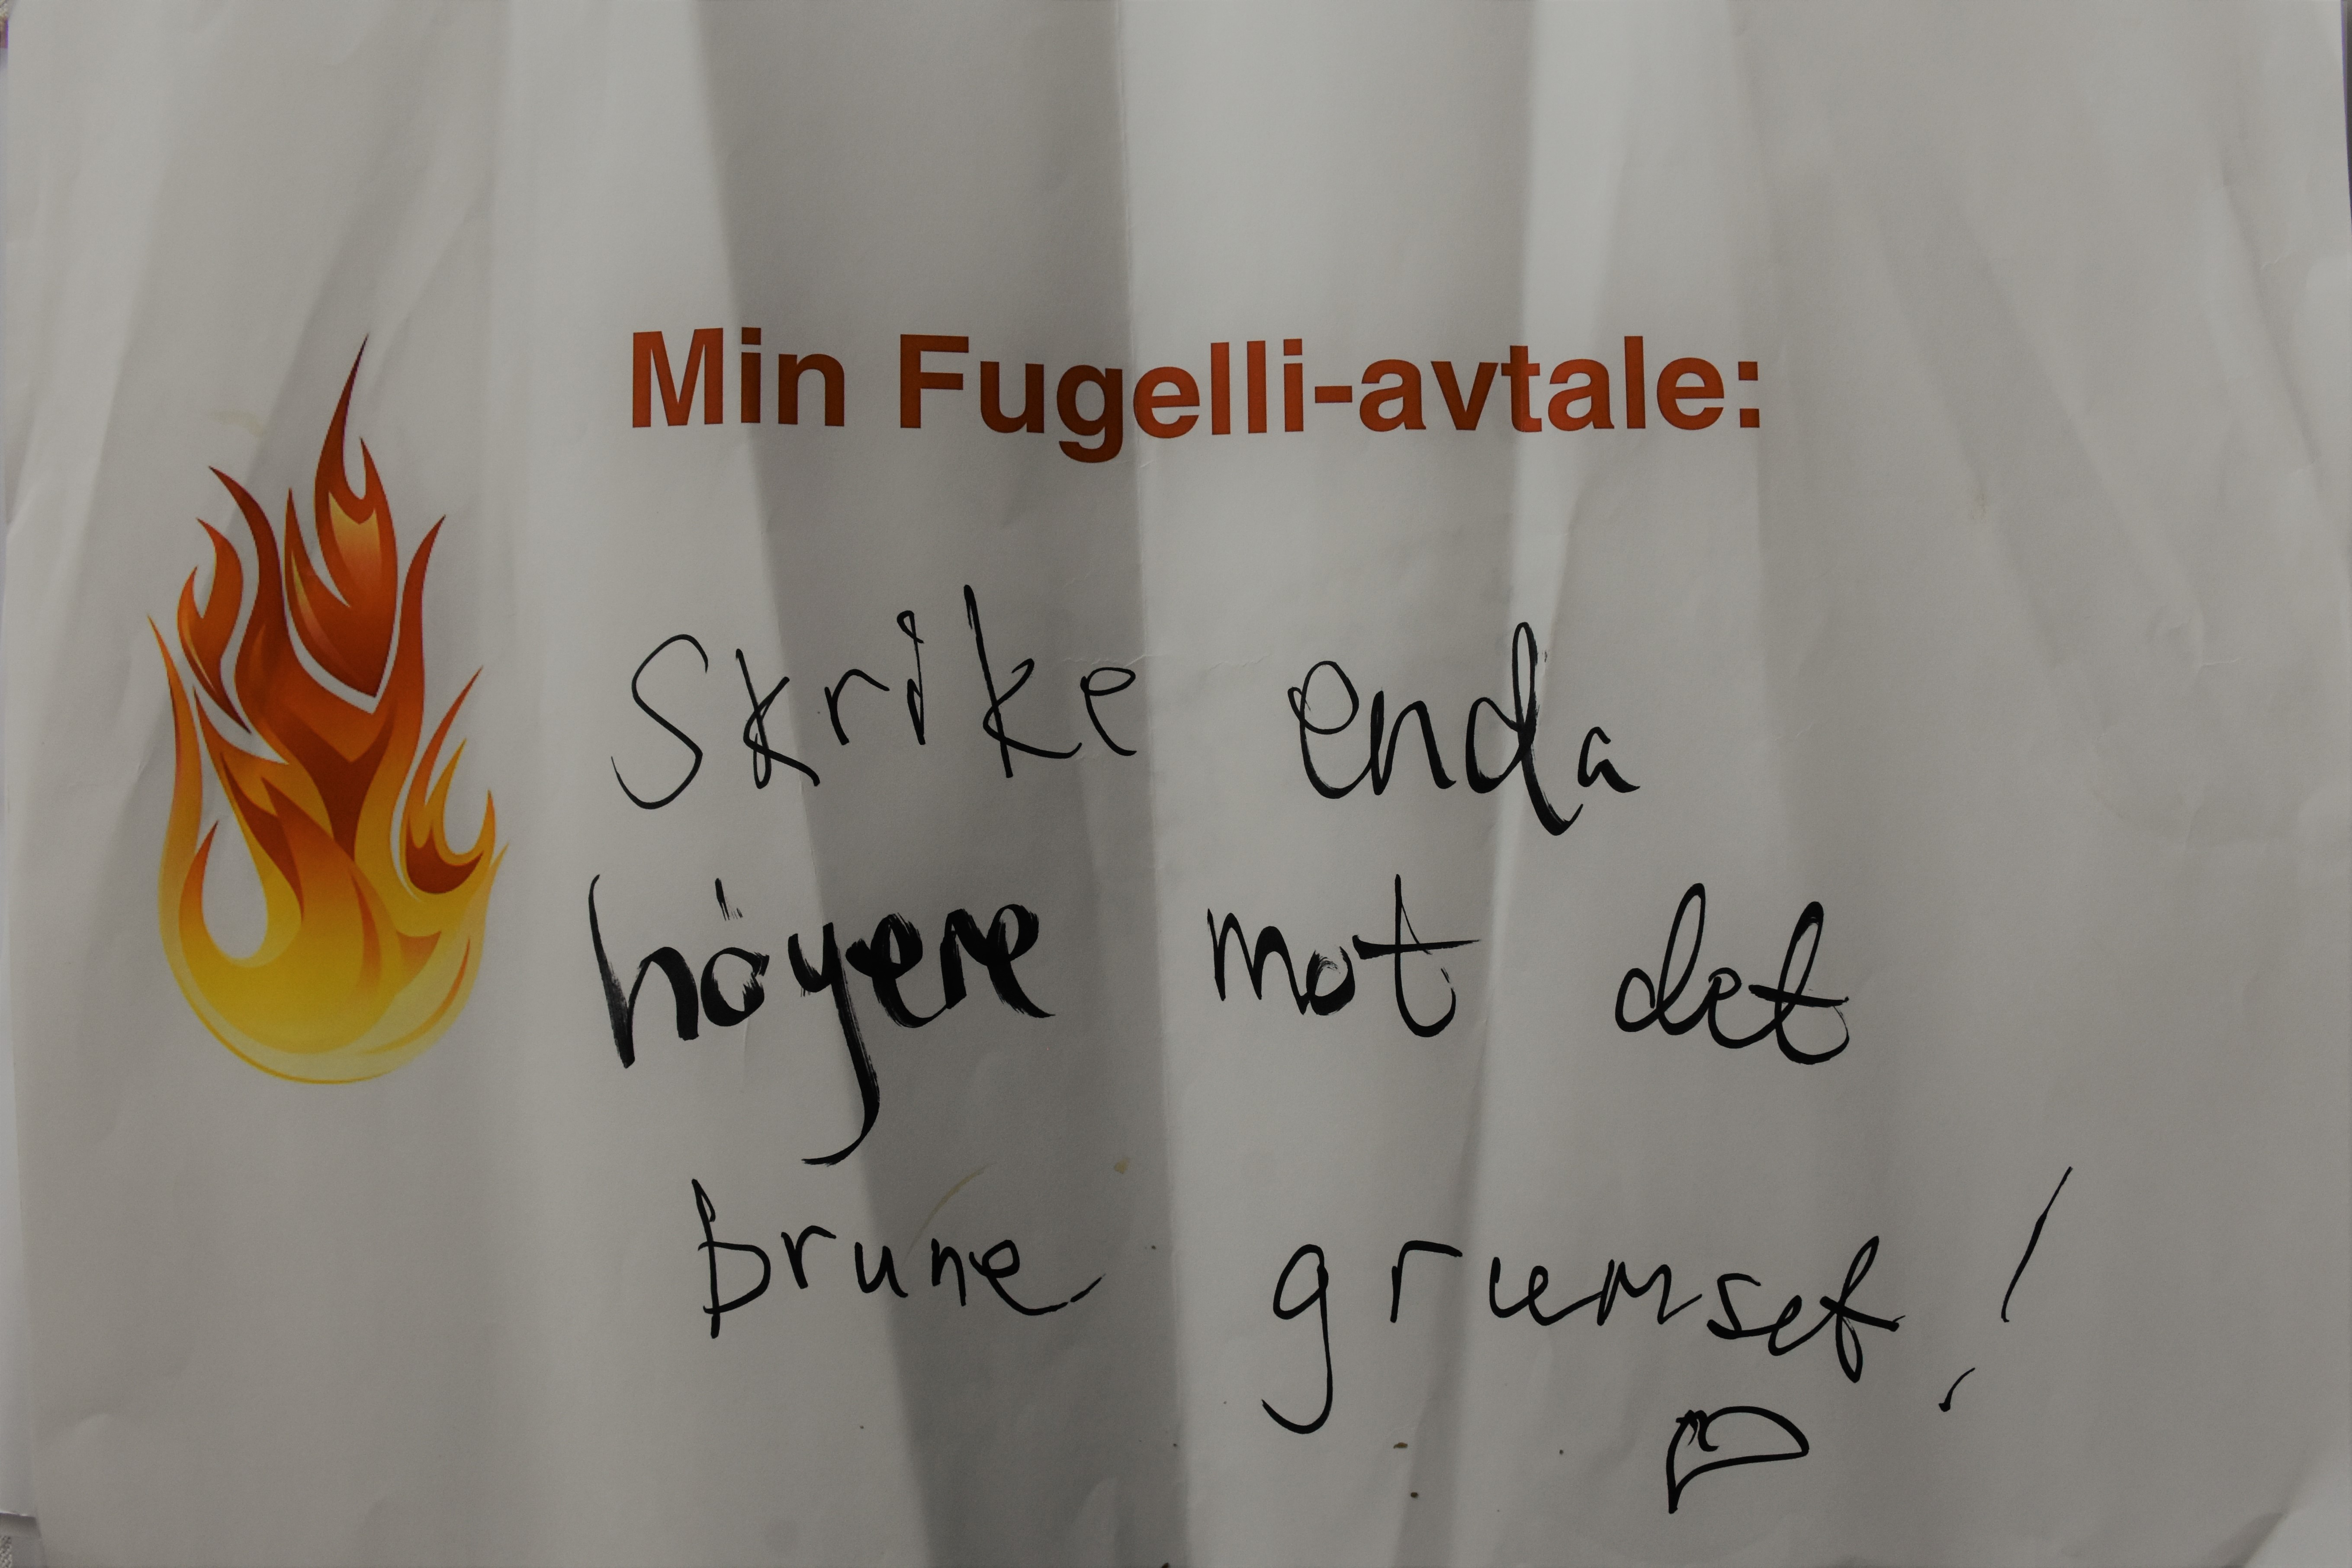 Min Fugelli-avtale:
Skrike enda
høyere mot det
brune grumset!